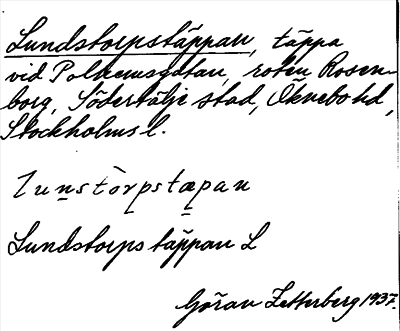 Lundstorpstäppan, täppa
vid Polhemsgatan, roten Rosen-
borg, Södertälje stad, Öknebo hd,
Stockholms l.
lunstòrpstæpan
Lundstorpstäppan L
Göran Zetterberg 1937.